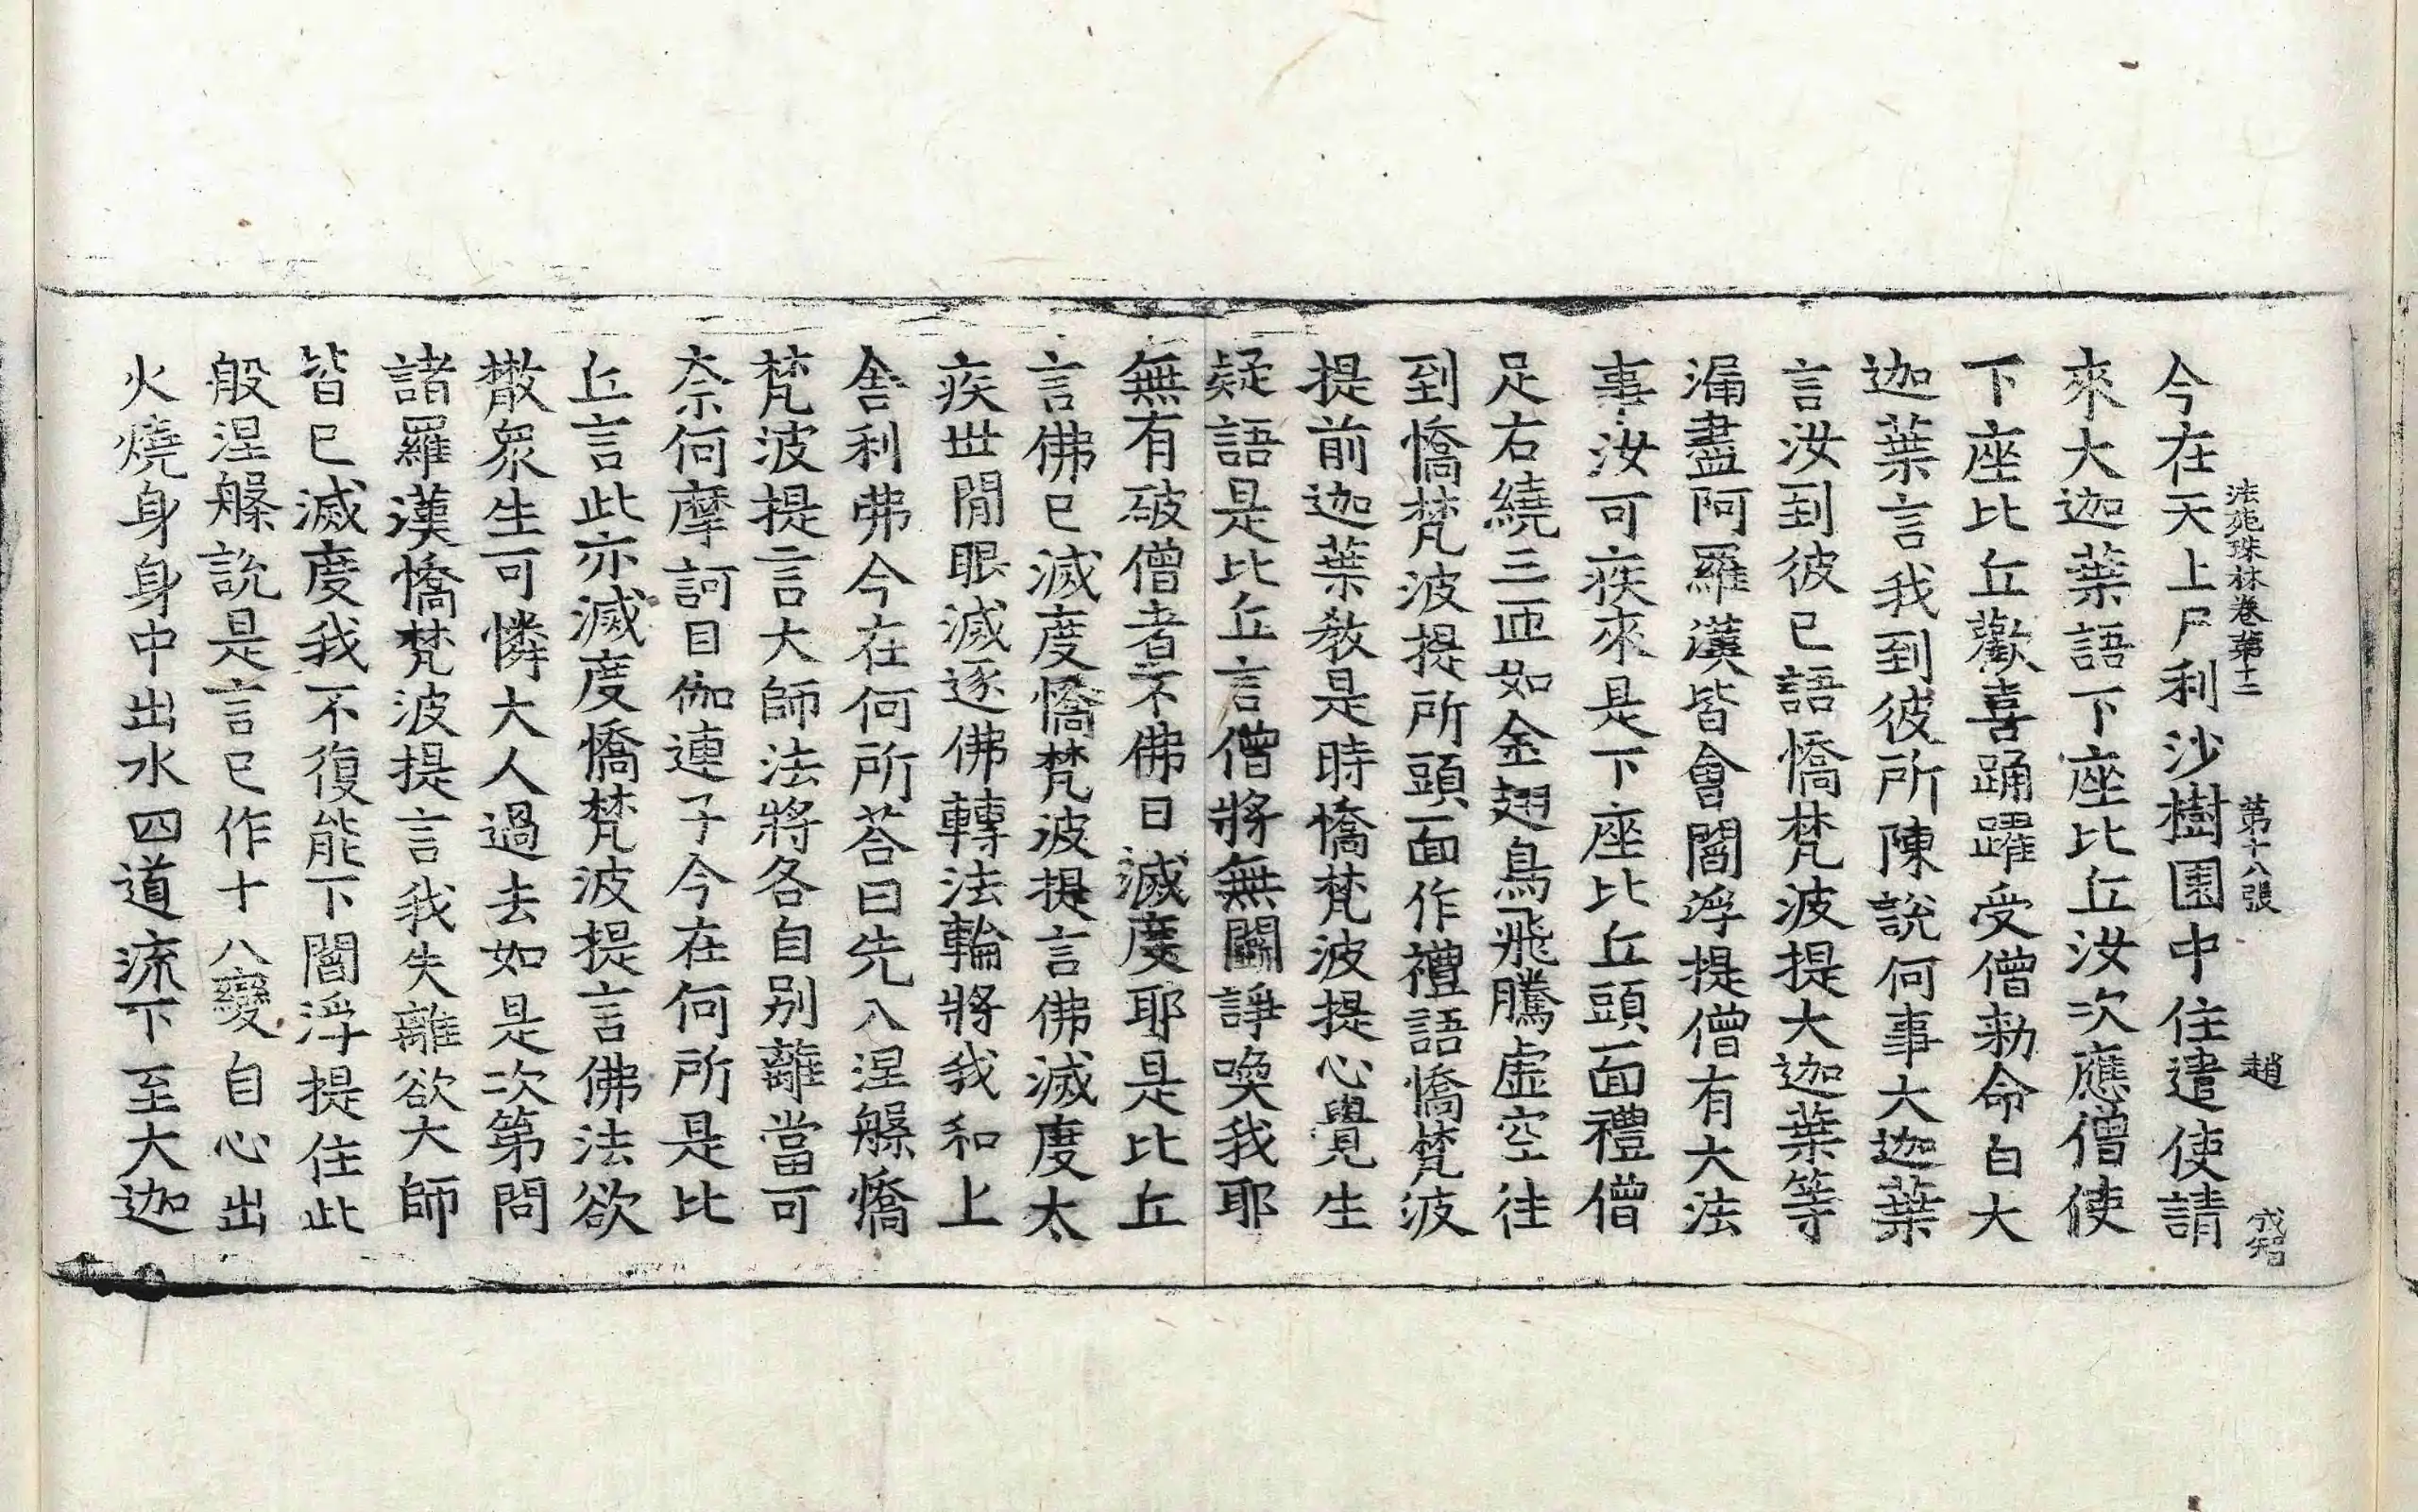 法苑珠林卷第十二 第十八張 趙
今在天上尸利沙樹園中住遣使請
來大迦葉語下座比丘汝次應僧使
下座比丘歡喜踊躍受僧勑命白大
迦葉言我到彼所陳說何事大迦葉
言汝到彼已語憍梵波提大迦葉等
漏盡阿羅漢皆會閻浮提僧有大法
事汝可疾來是下座比丘頭面禮僧
足右繞三匝如金翅鳥飛騰虛空往
到憍梵波提所頭面作禮語憍梵波
提前迦葉教是時憍梵波提心覺生
疑語是比丘言僧將無鬪諍喚我耶
無有破僧者不佛日滅度耶是比丘
言佛已滅度憍梵波提言佛滅度太
疾世間眼滅逐佛轉法輪將我和上
舍利弗今在何所荅曰先入涅槃憍
梵波提言大師法將各自別離當可
奈何摩訶目伽連子今在何所是比
丘言此亦滅度憍梵波提言佛法欲
散衆生可憐大人過去如是次第問
諸羅漢憍梵波提言我失離欲大師
皆已滅度我不復能下閻浮提住此
般涅槃說是言已作十八變自心出
火燒身身中出水四道流下至大迦